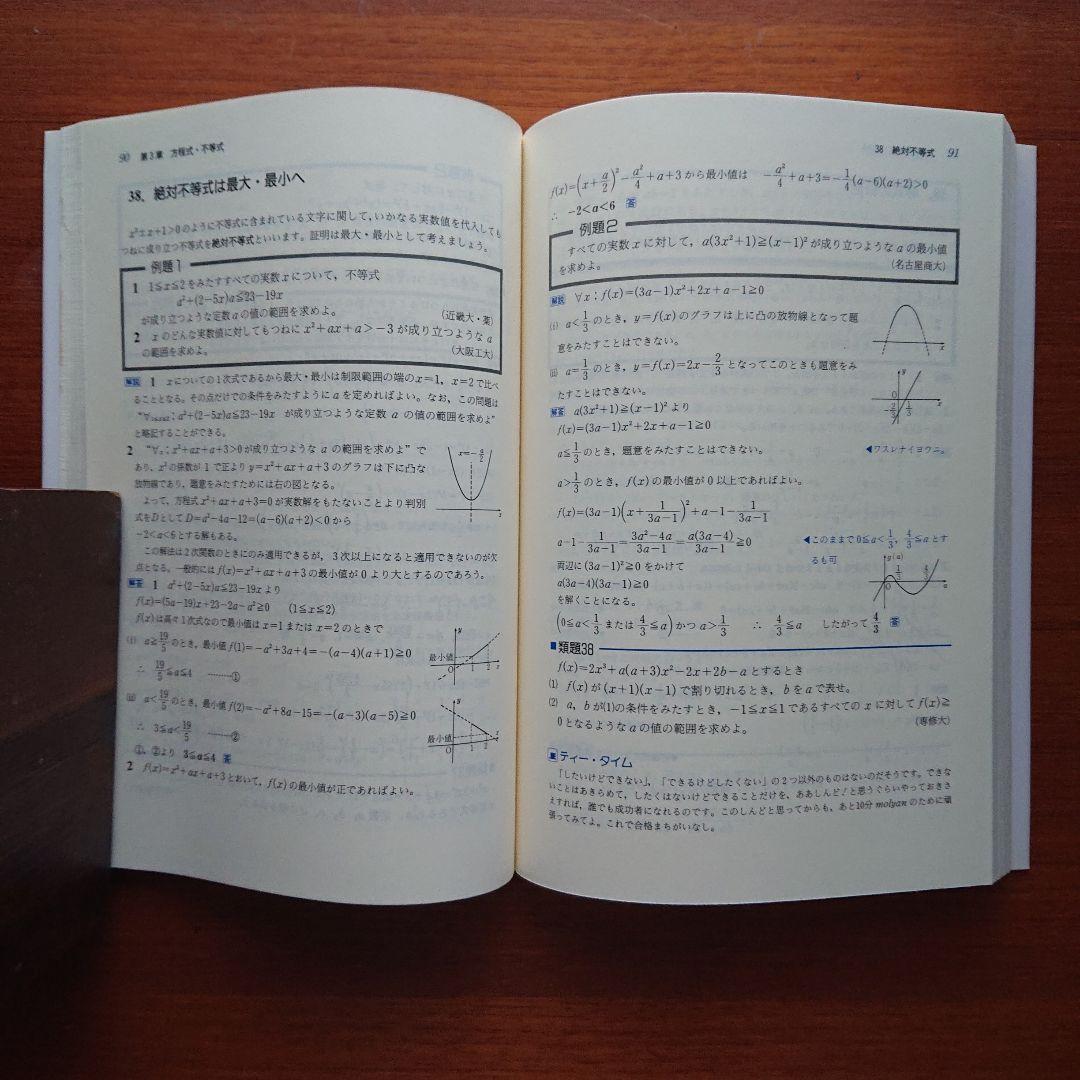 90 第3章 方程式・不等式
38. 絶対不等式は最大・最小へ
x²±x+1>0のように不等式に含まれている文字に関して,いかなる実数値を代入しても
つねに成り立つ不等式を絶対不等式といいます。証明は最大・最小として考えましょう。
例題1
1 1≦x≦2をみたすすべての実数xについて,不等式
a²+(2−5x)a≦23−19x
が成り立つような定数aの値の範囲を求めよ。 (近畿大・薬)
2 xのどんな実数値に対してもつねに x²+ax+a>−3が成り立つような a
の範囲を求めよ。 (大阪工大)
解説 1 xについての1次式であるから最大・最小は制限範囲の端のx=1, x=2で比べ
ることとなる。その点だけでの条件をみたすようにaを定めればよい。なお,この問題は
“∀1≦x≦2 ; a²+(2−5x)a≦23−19x が成り立つような定数 a の値の範囲を求めよ”
と略記することができる。
2 “∀x ; x²+ax+a+3>0が成り立つような a の範囲を求めよ”で
あり, x²の係数が1で正より y=x²+ax+a+3のグラフは下に凸な
放物線であり,題意をみたすためには右の図となる。
よって,方程式 x²+ax+a+3=0が実数解をもたないことより判別
式をDとして D=a²−4a−12=(a−6)(a+2)<0から
−2<a<6とする解もある。
この解法は2次関数のときにのみ適用できるが, 3次以上になると適用できないのが欠
点となる。一般的には f(x)=x²+ax+a+3 の最小値が0より大とするのであろう。
x=−a/2
x
解答 1 a²+(2−5x)a≦23−19xより
f(x)=(5a−19)x+23−2a−a²≧0 (1≦x≦2)
f(x)は高々1次式なので最小値は x=1または x=2のときで
(i) a≧19/5のとき, 最小値 f(1)=−a²+3a+4=−(a−4)(a+1)≧0
∴ 19/5≦a≦4 ………①
最小値
y
O 1 2 x
(ii) a<19/5のとき, 最小値 f(2)=−a²+8a−15=−(a−3)(a−5)≧0
∴ 3≦a<19/5 ………②
最小値
y
O 1 2 x
①, ②より 3≦a≦4 答
2 f(x)=x²+ax+a+3とおいて, f(x)の最小値が正であればよい。
38 絶対不等式 91
f(x)=(x+a/2)²−a²/4+a+3から最小値は −a²/4+a+3=−1/4(a−6)(a+2)>0
∴ −2<a<6 答
例題2
すべての実数xに対して, a(3x²+1)≧(x−1)²が成り立つような a の最小値
を求めよ。 (名古屋商大)
解説 ∀x ; f(x)=(3a−1)x²+2x+a−1≧0
(i) a<1/3のとき, y=f(x)のグラフは上に凸の放物線となって題
意をみたすことはできない。
x
(ii) a=1/3のとき, y=f(x)=2x−2/3となってこのときも題意をみ
たすことはできない。
y
O 1/3 x
−2/3
解答 a(3x²+1)≧(x−1)²より
f(x)=(3a−1)x²+2x+a−1≧0
a≦1/3のとき, 題意をみたすことはできない。 ◀ワスレナイヨウニ。
a>1/3のとき, f(x)の最小値が0以上であればよい。
f(x)=(3a−1)(x+1/(3a−1))²+a−1−1/(3a−1)
a−1−1/(3a−1)=(3a²−4a)/(3a−1)=a(3a−4)/(3a−1)≧0 ◀このままで0≦a<1/3, 4/3≦aとす
るも可
両辺に(3a−1)²≧0をかけて
a(3a−4)(3a−1)≧0
を解くことになる。
g(a)
0 1/3 4/3 a
(0≦a<1/3 または 4/3≦a) かつ a>1/3 ∴ 4/3≦a したがって 4/3 答
類題38
f(x)=2x³+a(a+3)x²−2x+2b−aとするとき
(1) f(x)が(x+1)(x−1)で割り切れるとき, bをaで表せ。
(2) a, bが(1)の条件をみたすとき, −1≦x≦1であるすべてのxに対して f(x)≧
0となるようなaの値の範囲を求めよ。 (専修大)
ティー・タイム
「したいけどできない」,「できるけどしたくない」の2つ以外のものはないのだそうです。できな
いことはあきらめて,したくはないけどできることだけを,ああしんど!と思うぐらいやっておきさ
えすれば,誰でも成功者になれるのです。このしんどと思ってからも,あと10分 molyan のために頑
張ってみてよ。これで合格まちがいなし。